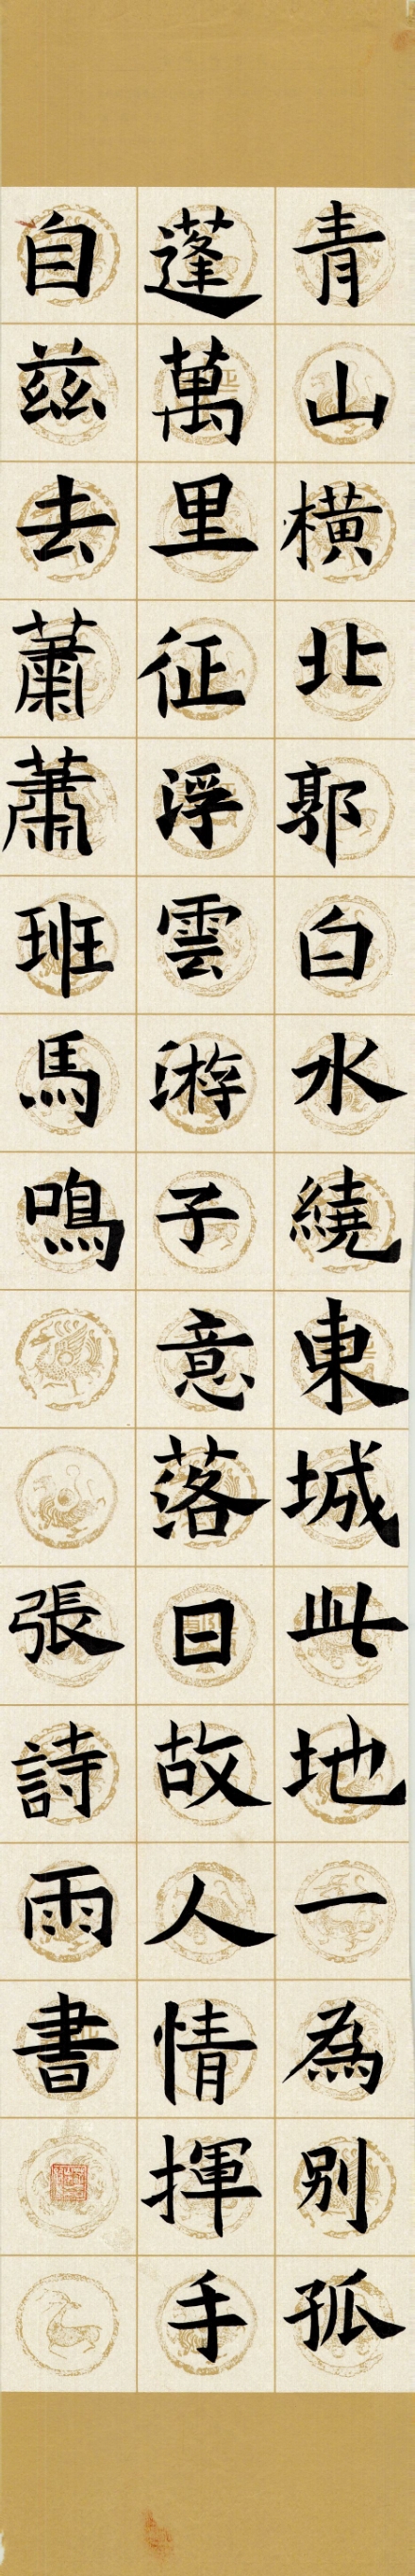 青山橫北郭白水繞東城此地一為别孤
蓬萬里征浮雲游子意落日故人情揮手
自茲去蕭蕭班馬鳴
張詩雨書